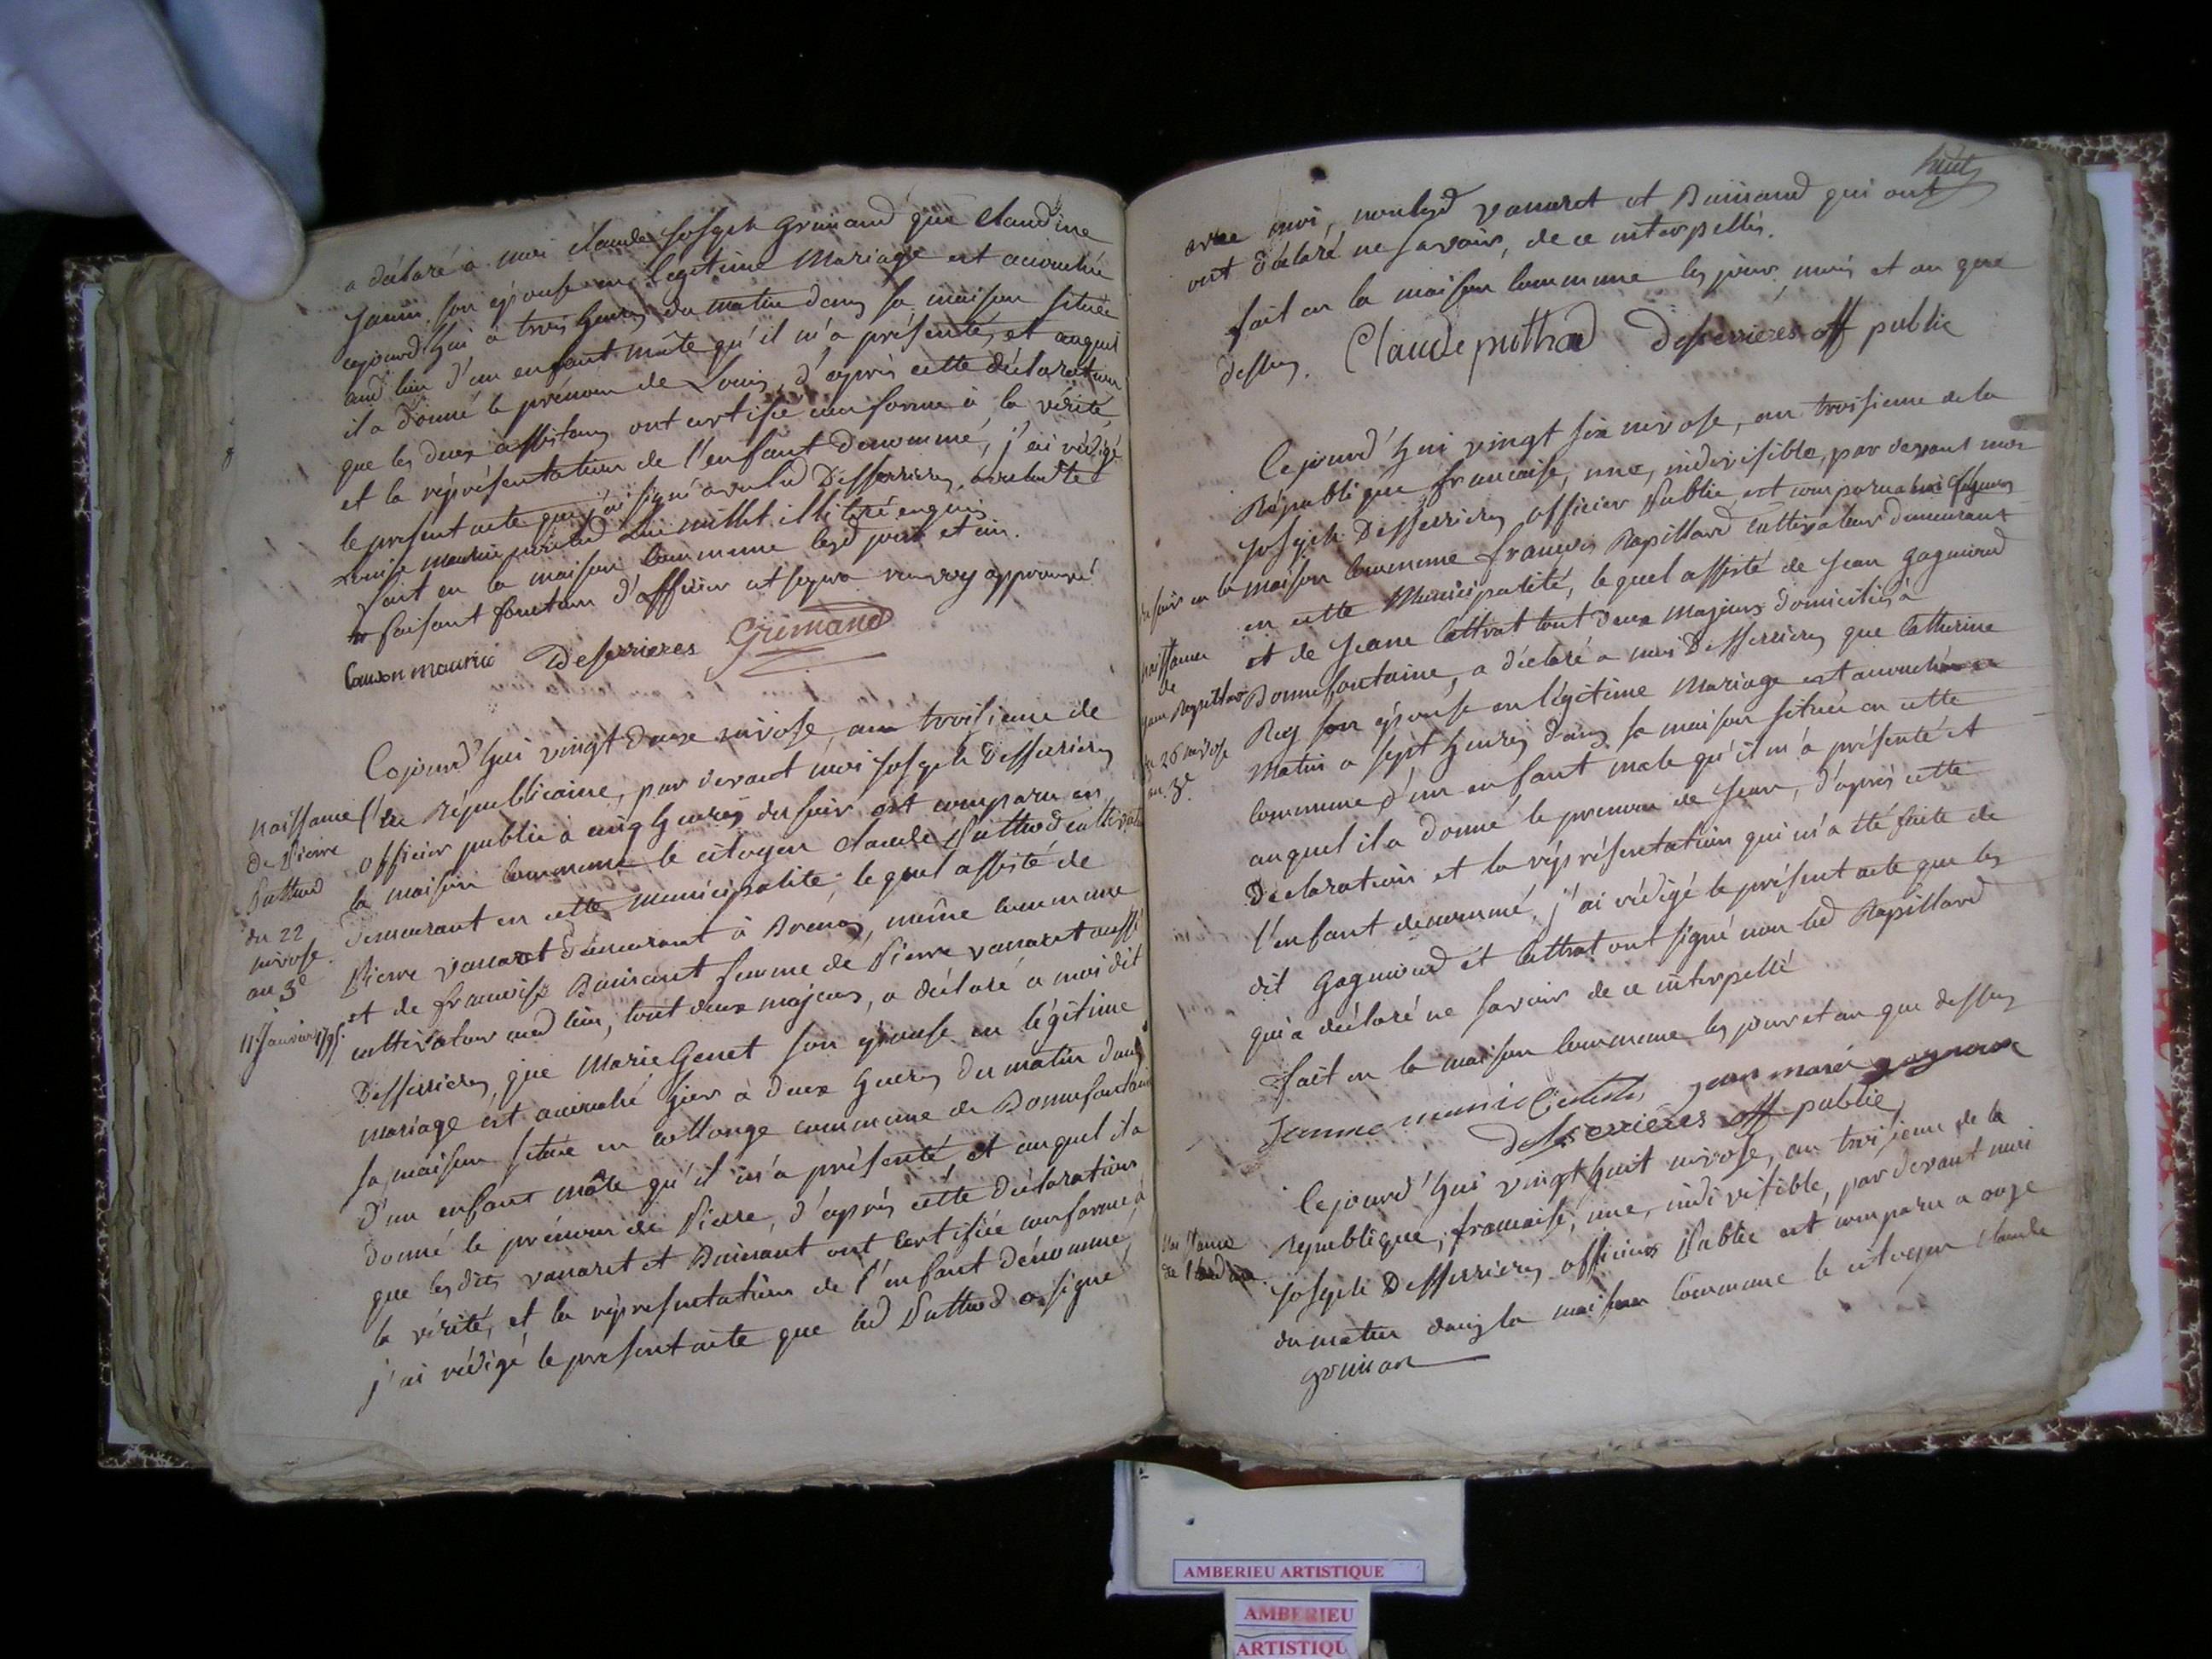 a déclaré à moi Claude Joseph Grimaud que Claudine
Janin son épouse en légitime mariage est accouchée
cejourd'hui à trois heures du matin dans sa maison située
aud lieu d'un enfant mâle qu'il m'a présenté, et auquel
il a donné le prénom de Louis, d'après cette déclaration
que les deux assistans ont certifié conforme à la vérité,
et la représentation de l'enfant denommé, j'ai rédigé
le present acte que j'ai signé avec led Desserrieres
Louise illitéré enquis
fait en la maison commune lesd jour et an.
faisant fonction d'officier renvoy approuvé
maurice Deserrieres Grimaud
Cejourd'hui vingt deux nivose, an troisieme de
l'Ere Républicaine, par devant moi Joseph Desserrieres
officier public à cinq heures du soir est comparu en
la maison commune le citoyen Claude Puthod cultivateur
demeurant en cette municipalité, lequel assisté de
Pierre vanaret demeurant à Brenoz, même commune
et de francoise Buinant femme de Pierre vanaret aussi
cultivateur aud lieu, tout deux majeurs, a déclaré a moi dit
Desserrieres, que Marie Genet son épouse en légitime
mariage est accouché hier à deux heures du matin dans
sa maison située en collonge commune de Bonnefontaine
d'un enfant mâle qu'il m'a présenté et auquel il a
donné le prénom de Pierre, d'après cette déclaration
que lesdits vanaret et Buinant ont certifiée conforme à
la vérité, et la représentation de l'enfant dénommé,
j'ai rédigé le present acte que led Puthod a signé
naissance
de Pierre
Puthod
du 22
nivose
an 3e
11 Janvier 1795.
huit
avec moi, non lesd vanaret et Buinand qui ont
ont déclaré ne savoir, de ce interpellés.
fait en la maison commune les jour, mois et an que
dessus. Claude puthod deserrieres off public
Cejourd'hui vingt six nivose, an troisieme de la
République francaise, une, indivisible, par devant moi
Joseph Desserrieres officier Public est comparu
du soir en la maison commune francois Rapillard cultivateur demeurant
en cette Municipalité, lequel assisté de Jean gagnioud
et de Jeane Cattrat tout deux majeurs domiciliés à
Bonnefontaine, a déclaré a moi Desserrieres que Catherine
Rey son épouse en légitime mariage est accouchée
matin a sept heures dans sa maison située en cette
commune d'un enfant male qu'il m'a présenté et
auquel il a donné le prenom de Jean, d'après cette
Declaration et la représentation qui m'a été faite de
l'enfant denommé, j'ai rédigé le présent acte que les
dit gagnioud et Cattrat ont signé non led Rapillard
qui a déclaré ne savoir de ce interpellé
fait en la maison commune les jour et an que dessus
Jeanne marie jean marie
deserrieres off public
naissance
de
Jean Rapillard
du 26 nivose
an 3e.
Cejourd'hui vingt huit nivose, an troisieme de la
Republique, francaise, une, indivisible, par devant moi
Joseph Desserrieres officier Public est comparu a onze
du matin dans la maison commune le citoyen Claude
naissance
AMBERIEU ARTISTIQUE
AMBERIEU
ARTISTIQU